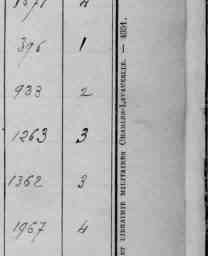 396 1
933 2
1263 3
1362 3
1967 4
ET LIBRAIRIE MILITAIRES CHARLES-LAVAUZELLE. — 4331.